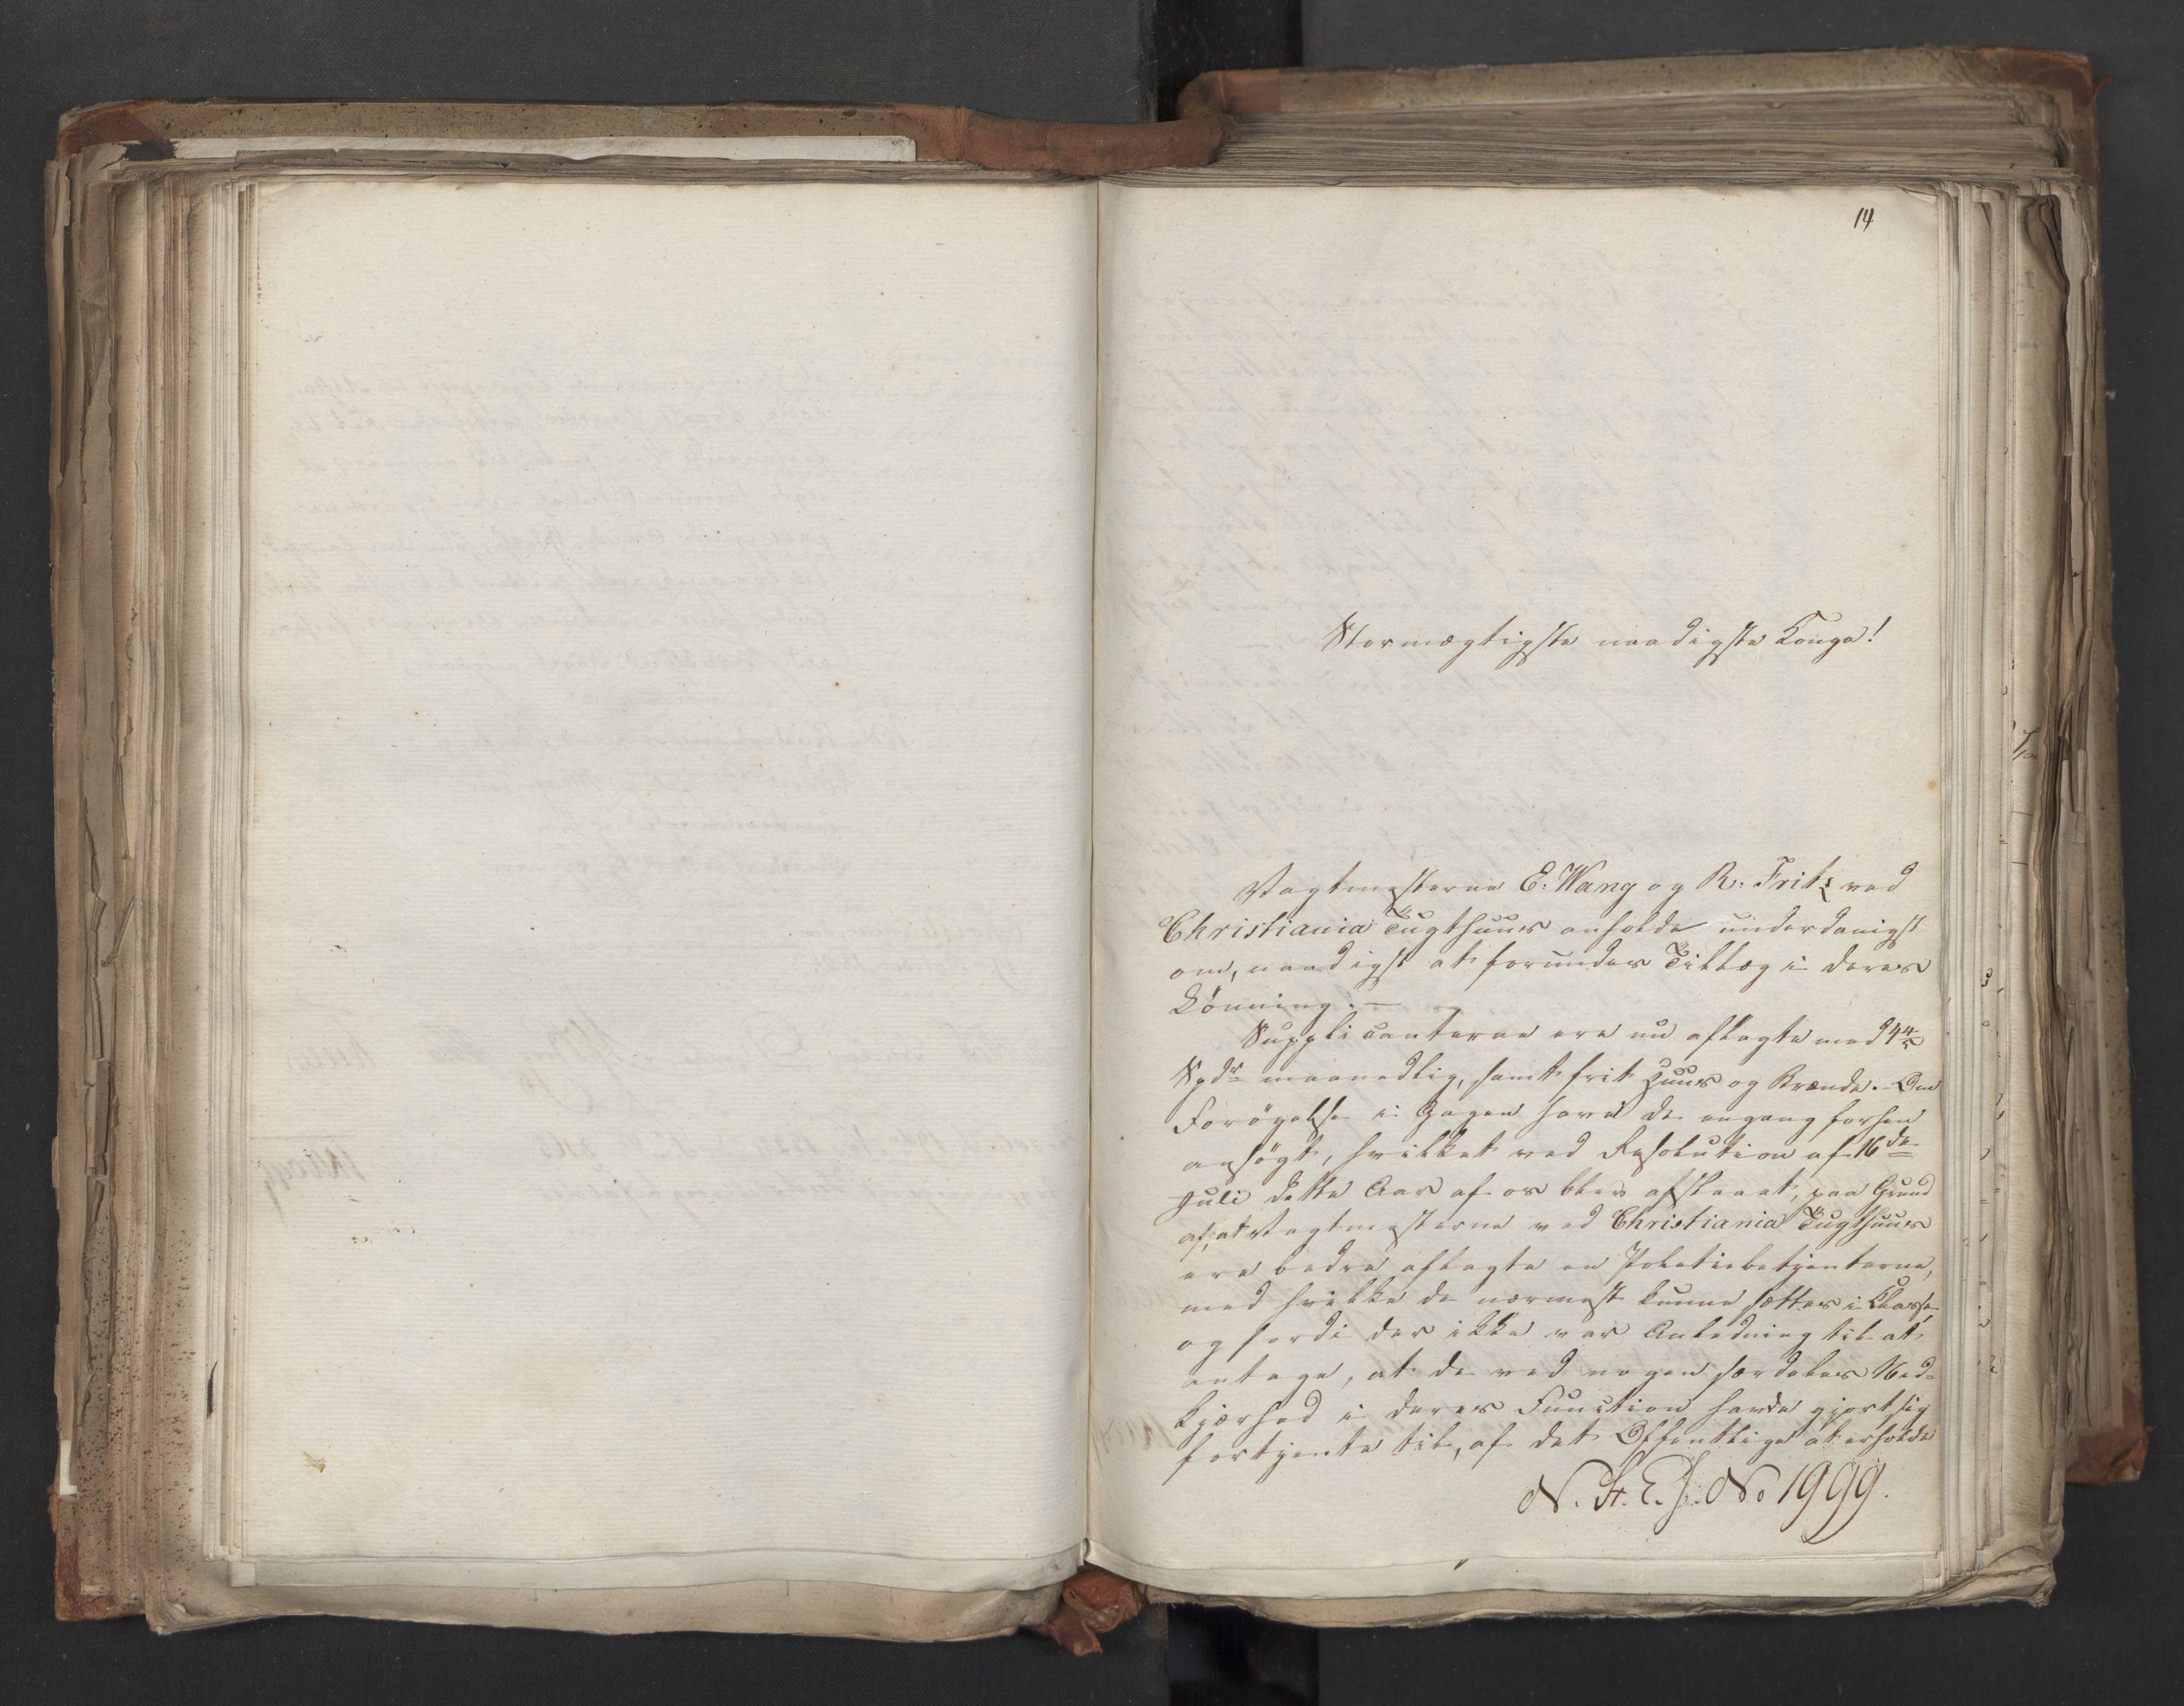 14
Stormægtigste naadigste Konge!
Vagtmesterne E. Wang og R. Fritz ved
Christiania Tugthuus anholde underdanigst
om, naadigst at forundes Tillæg i deres
Lönning. —
Supplicanterne ere nu aflagte med
Spdr maanedlig, samt frit Huus og Brænde. Om
Forögelse i Gagen have de engang forhen
ansögt, hvilket ved Resolution af 16de
Juli dette Aar af os blev afslaaet, paa Grund
af, at Vagtmesterne ved Christiania Tugthuus
ere bedre aflagte en Politiebetjenterne,
med hvilke de nærmest kunne sættes i Classe,
og fordi der ikke var Anledning til at
antage, at de ved nogen særdeles Ned-
kjærhed i deres Function havde gjort sig
fortjente til, af det Offentlige at erholde
N. St. E. J. No 1999.